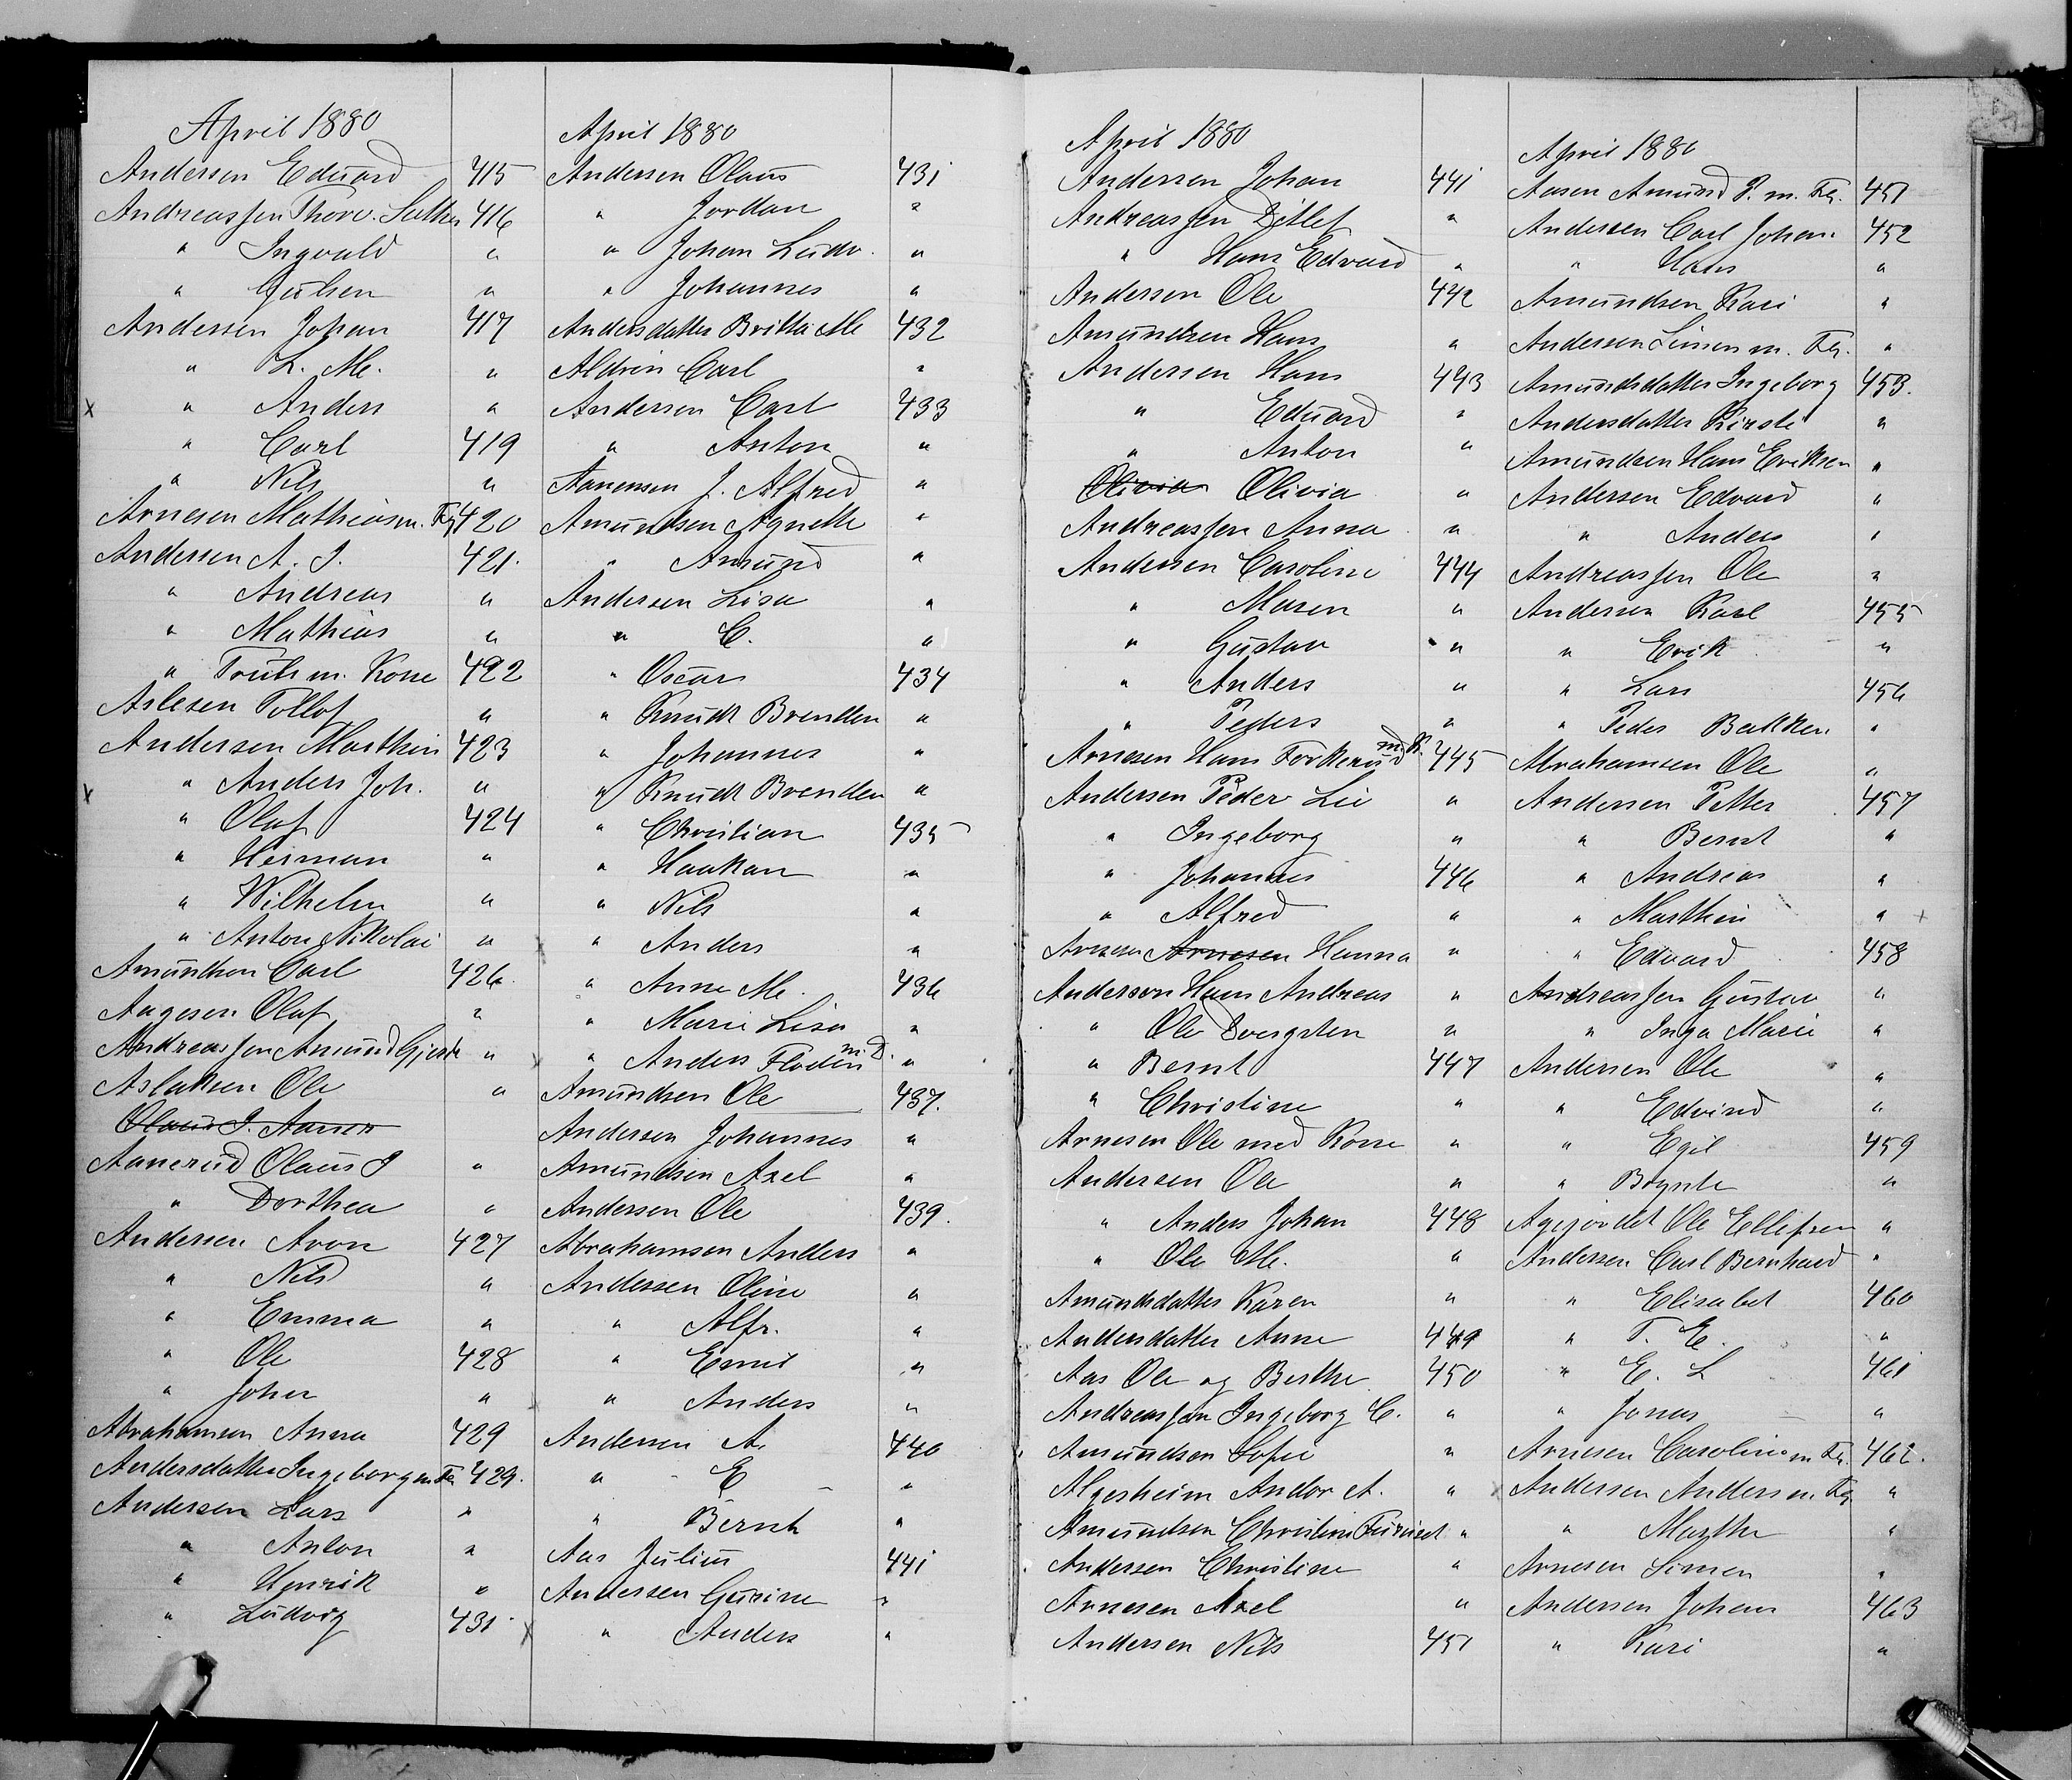 April 1880
Andersen Eduard 415
Andreassen Thorv. Sether 416
" Ingvald "
" Gulsen "
Andersen Johan 417
" L. M. "
x " Anders "
" Carl 419
" Nils "
Arnesen Mathias m. Fg 420
Andersen A. J. 421.
" Andreas "
" Mathias "
" Truls m. Kone 422
Aslesen Tollof "
Andersen Marthin 423
x " Anders Joh. "
" Olaf 424
" Herman "
" Wilhelm "
" Anton Nikolai "
Amundsen Carl 426.
Aagesen Olaf "
Andreassen Amund "
Aslaksen Ole "
Aanerud Olaus J "
" Dorthea "
Andersen Aron 427
" Nils "
" Emma "
" Ole 428
" Johan "
Abrahamsen Anna 429
Andersdatter Ingeborg m Fa 429.
Andersen Lars "
" Anton "
" Henrik "
" Ludvig 431.
April 1880
Andersen Olaus 431
" Jordan "
" Johan Ludv. "
" Johannes "
Andersdatter Britta M 432
Aldrin Carl "
Andersen Carl 433
" Anton "
Aanensen J. Alfred "
Amundsen Agnethe "
" Amund "
Andersen Lisa "
" C. "
" Oscar 434
" Knudt Brenden "
" Johannes "
" Knudt Brenden "
" Christian 435
" Haakan "
" Nils "
x " Anders "
" Anne M. 436
" Marie Lisa "
x " Anders Floden m. D. "
Amundsen Ole 437.
Andersen Johannes "
Amundsen Axel "
Andersen Ole 439.
Abrahamsen Anders "
Andersen Oline "
" Alfr. "
" Emil "
" Anders "
Andersen A. 440
" E "
" Bernt "
Aas Julius 441
Andersen Gurine "
x " Anders "
April 1880
Andersen Johan 441
Andreassen Ditlef "
" Hans Edvard "
Andersen Ole 442
Amundsen Hans "
Andersen Hans 443
" Eduard "
" Anton "
Olivia Olivia "
Andreassen Anna "
Andersen Caroline 444
" Maren "
" Gustav "
" Anders "
" Peders "
Arnesen Hans Torkerud m. K. 445
Andersen Peder Lie "
" Ingeborg "
" Johannes 446
" Alfred "
Arnesen Arnesen Hanna "
Anderson Hans Andreas "
" Ole "
" Bernt 447
" Christine "
Arnesen Ole med Kone "
Andersen Ole "
" Anders Johan 448
" Ole M. "
Amundsdatter Karen "
Andersdatter Anne 449
Aas Ole og Berthe 450
Andreassen Ingeborg C. "
Amundsen Sofie "
Algesheim Andor A. "
Amundsen Christine Furuset "
Andersen Christine "
Arnesen Axel "
Andersen Nils 451
April 1880
Aasen Amund P. m. Fg. 451
Andersen Carl Johan 452
" Hans "
Amundsen Kari "
Andersen Simen m. Fg. "
Amundsdatter Ingeborg 453.
Andersdatter Kirsti "
Amundsen Hans Eriksen "
Andersen Edvard "
" Anders "
Andreassen Ole "
Andersen Karl 455
" Erik "
" Lars 456
" Peder Bakken "
Abrahamsen Ole "
Andersen Petter 457
" Bernt "
" Andreas "
" Marthin "
" Edvard 458
Andreassen Gustav "
" Inga Marie "
Andersen Ole "
" Edvind "
" Egil 459
" "
Ole Ellefsen "
Andersen Carl Bernhard "
" Elisabet 460
" T. E. "
" E. L 461
" Jonas "
Arnesen Caroline m Fg. 462.
x Andersen Anders m. Fg "
" Marthe "
Arnesen Simen "
Andersen Johan 463
" Kari "